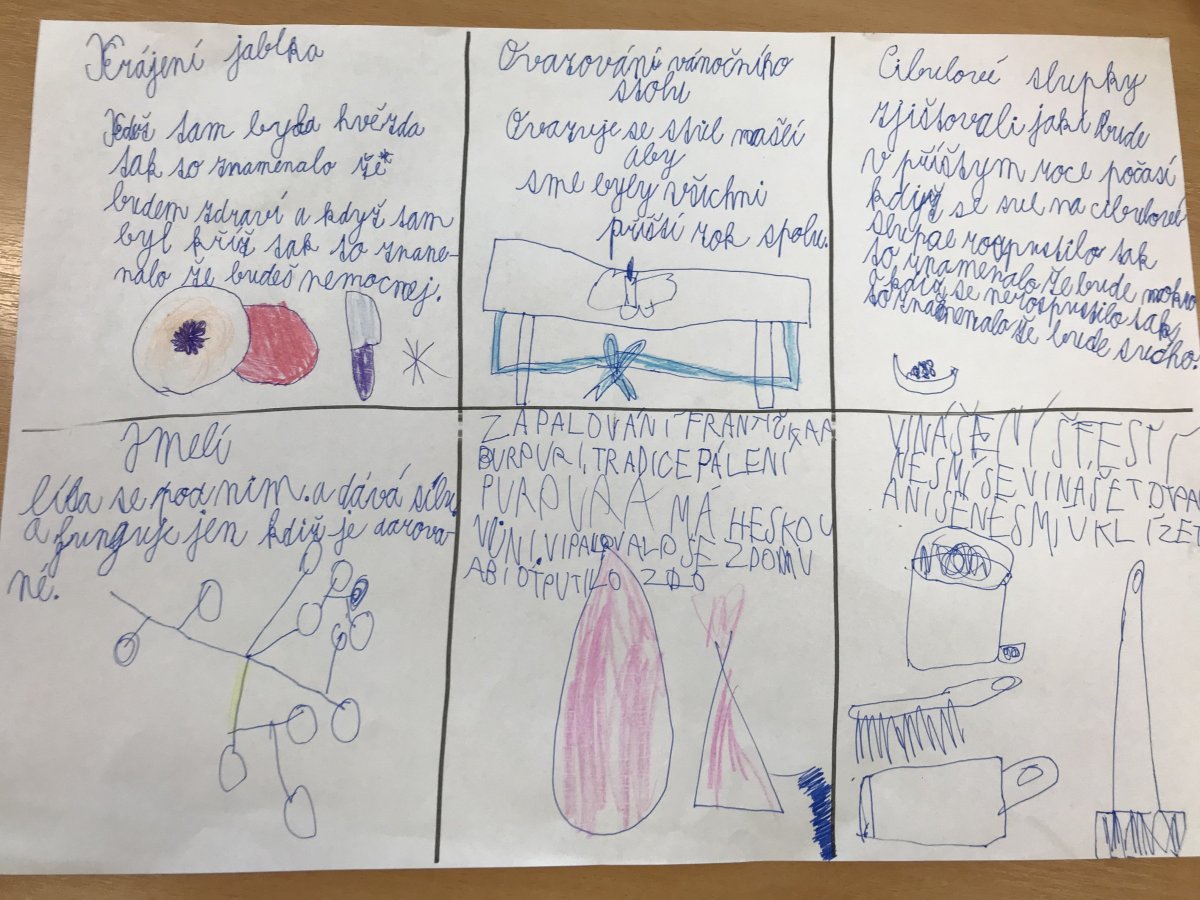 Krájení jablka
Když tam byla hvězda
tak to znamenalo že
budem zdraví a když tam
byl kříž tak to zname-
nalo že budeš nemocnej.
Ovazování vánočního
stolu
Ovazuje se stůl mašlí
aby
sme byly všichni
příští rok spolu.
Cibulové slupky
zjištovali jaké bude
v příštym roce počasí
když se sůl na cibulové
slupce rozpustilo tak
to znamenalo že bude mokro
a když se nerospustilo tak
to znamenalo že bude sucho.
Jmelí
líba se pod ním. a dává sílu.
a funguje jen když je darova-
né.
ZAPALOVÁNÍ FRANTIŠKA A
BURPURI, TRADICE PÁLENÍ
PURPURA MÁ HESKOU
VŮNI. VIPALOVALO SE Z DOMU
ABI OTPUTILO ZLO
VINÁŠENÍ ŠTESTÍ
NESMÍ SE VINAŠET OTPAD
ANI SE NESMI UKLÍZET